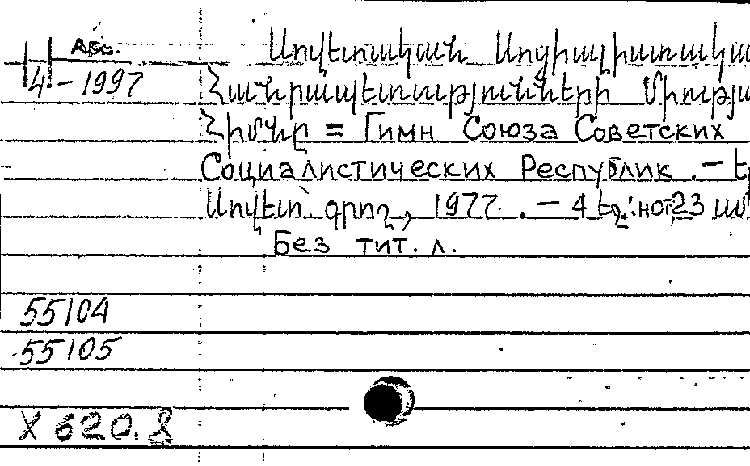 Або.
Սովետական Սոցիալիստակա
4-1997
Հանրապետությունների Միությա
Հիմնը = Гимн Союза Советских
Социалистических Республик. — Ե
Սովետ. գրող, 1977. — 4 էջ: нот 23 սմ
Без тит. л.
55104
55105
X 620.8